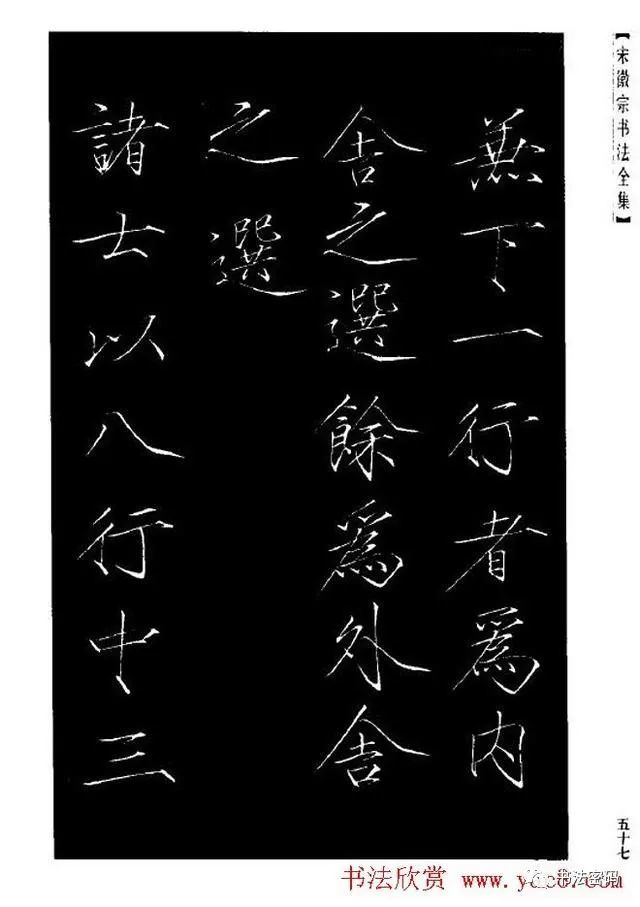 【宋徽宗书法全集】
兼下一行者爲内
舎之選餘爲外舎
之選
諸士以八行中三
五十七
书法欣赏 www.yac8.com
书法密码